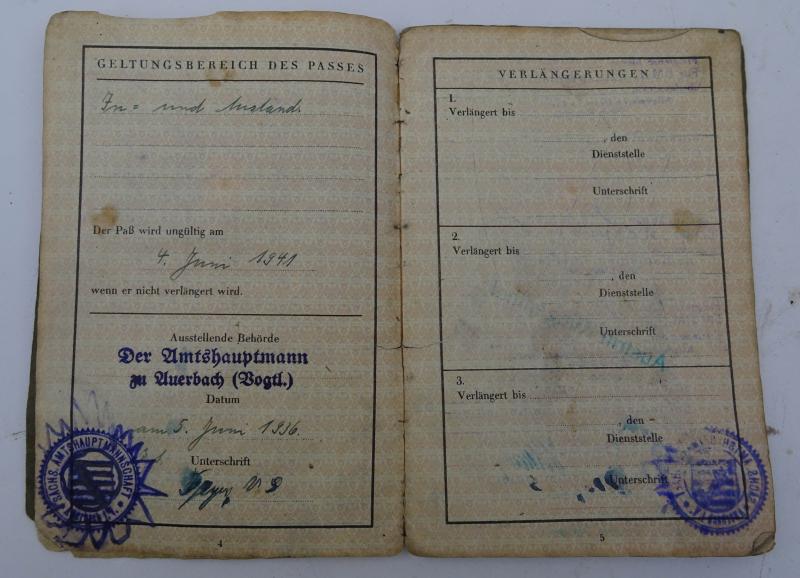 GELTUNGSBEREICH DES PASSES
In= und Ausland.
Der Paß wird ungültig am
4. Juni 1941
wenn er nicht verlängert wird.
Ausstellende Behörde
Der Amtshauptmann
zu Auerbach (Vogtl.)
Datum
am 5. Juni 1936.
Unterschrift
SÄCHS. AMTSHAUPTMANNSCHAFT
4
VERLÄNGERUNGEN
1.
Verlängert bis
, den
Dienststelle
Unterschrift
2.
Verlängert bis
, den
Dienststelle
Unterschrift
3.
Verlängert bis
, den
Dienststelle
Unterschrift
5